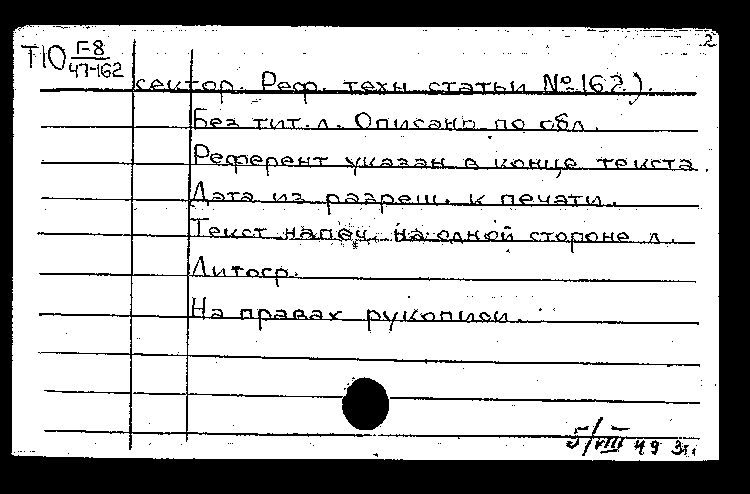 2
Т10 Г-8
47-162
сектор. Реф. техн статьи № 162).
Без тит. л. Описано по обл.
Референт указан в конце текста.
Дата из разреш. к печати.
Текст напеч. на одной стороне л.
Литогр.
На правах рукописи.
5/VIII 49 Зт.